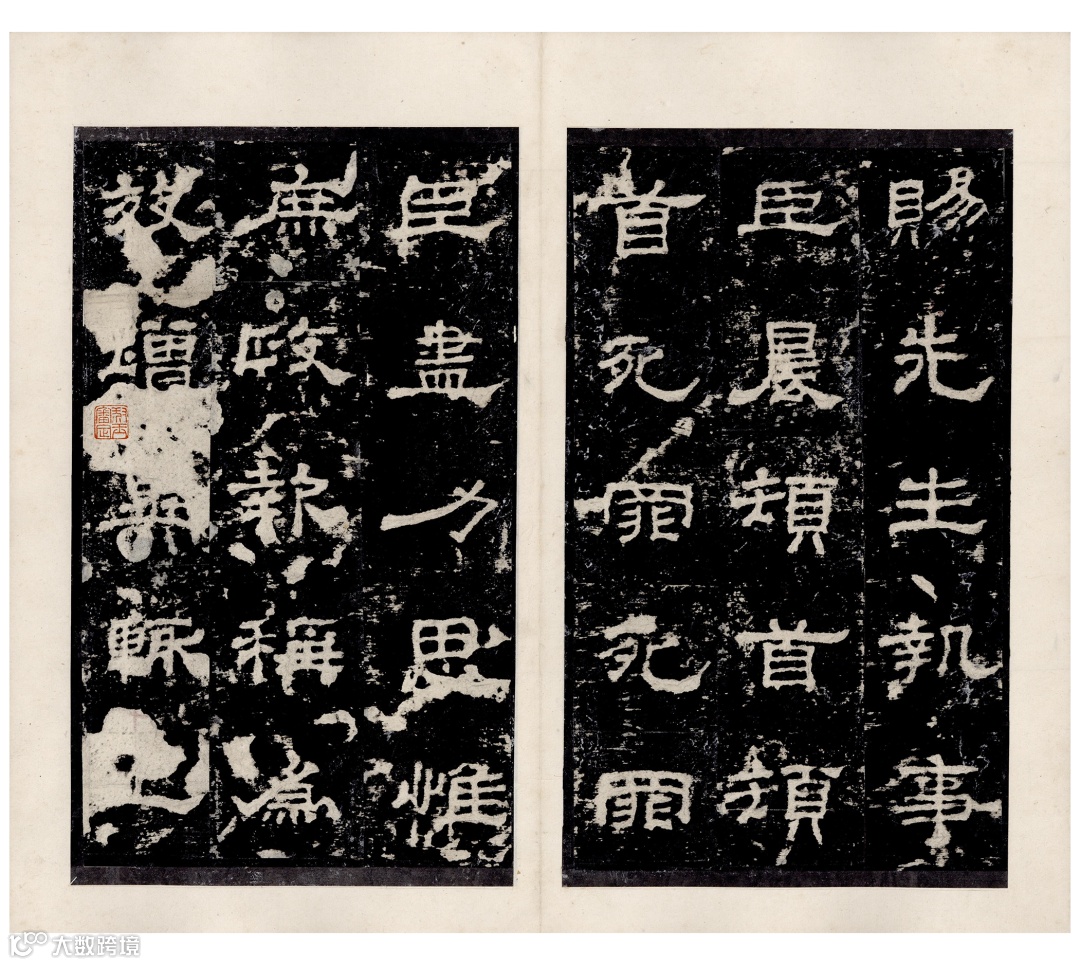 賜先生執事
臣晨頓首頓
首死罪死罪
臣盡力思惟
庶政報稱為
效增異輒上
大数跨境